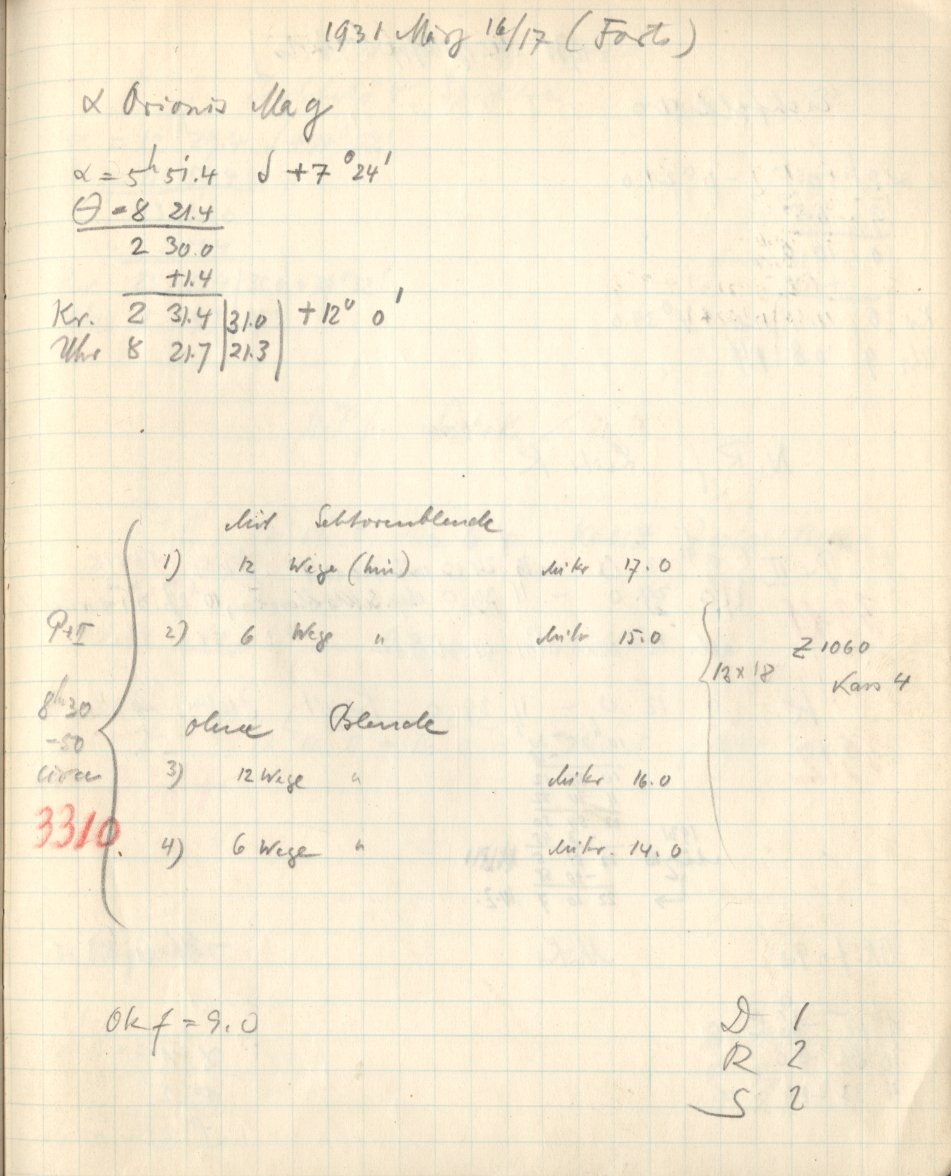 1931 März 16/17 (Forts)
α Orionis Mag
α = 5h 51.4 δ +7° 24'
θ = 8 21.4
2 30.0
+1.4
Kr. 2 31.4 | 31.0 +12° 0'
Uhr 8 21.7 | 21.3
Mit Sektorenblende
1) 12 Wege (hin) Mikr 17.0
2) 6 Wege " Mikr 15.0
P+II
12x18 Z 1060
Kass 4
8h 30
-50
circa
ohne Blende
3) 12 Wege " Mikr 16.0
3310
4) 6 Wege " Mikr. 14.0
Ok f = 9.0
D 1
R 2
S 2